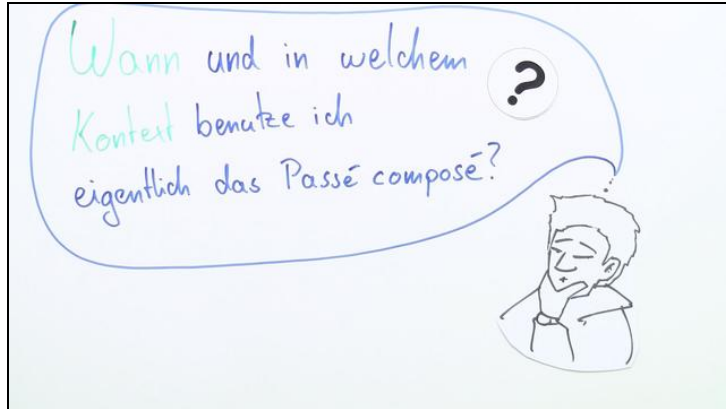 Wann und in welchem
?
Kontext benutze ich
eigentlich das Passé composé?